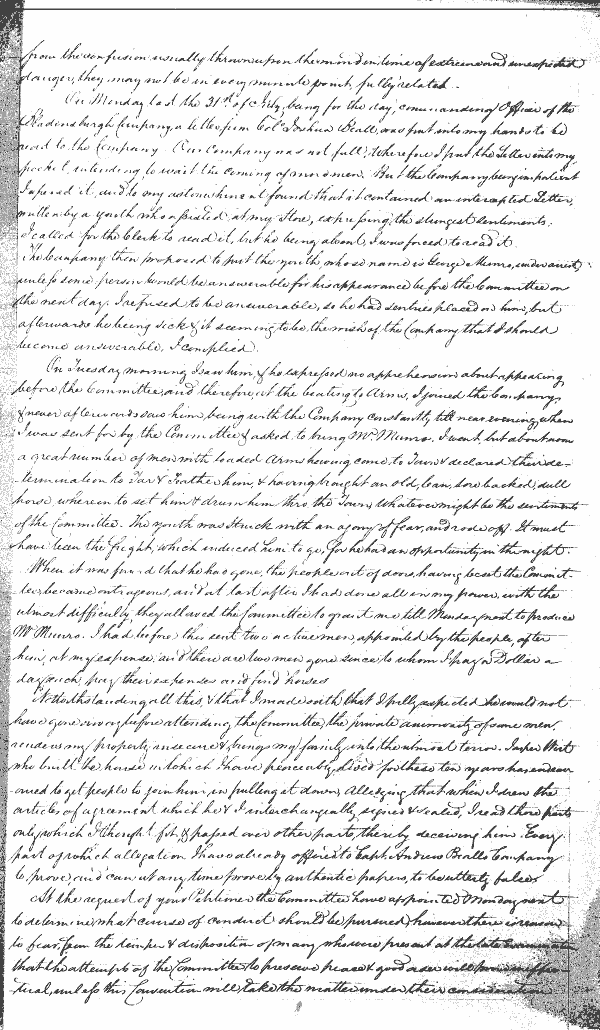 from the confusion usually thrown upon the mind in time of extreme and unexpected
danger, they may not be in every minute point, fully related.
On Monday last the 31st of July, being for the day, commanding Officer of the
Bladensburgh Company, a letter from Colo. Joshua Beall, was put into my hands to be
read to the Company. Our Company was not full; Wherefore I put the Letter into my
pocket, intending to wait the coming of more men. But the Company being impatient
I opened it, and to my astonishment found that it contained an intercepted Letter,
written by a youth who assisted, at my Store, expressing the strongest sentiments:
I called for the Clerk to read it, but he being absent, I was forced to read it.
The Company then proposed to put the youth, whose name is George Munro, under arrest,
unless some person would be answerable for his appearance before the Committee on
the next day. I refused to be answerable, so he had sentries placed on him, but
afterwards he being sick & it seeming to be, the wish of the Company that I should
become answerable, I complied.
On Tuesday morning, I saw him, & he expressed no apprehension about appearing
before the Committee, and therefore, at the beating to Arms, I joined the Company,
& never afterwards saw him, being with the Company constantly till near evening, when
I was sent for by the Committee & asked to bring Mr. Munro. I went, but about noon
a great number of men with loaded Arms having come to Town & declared their de-
termination to Tar & Feather him, & having brought an old, lean, sore backed, dull
horse, whereon to set him & drum him thro the Town, Whatever might be the sentiments
of the Committee. The youth was struck with an agony of fear, and rode off. It must
have been the fright, which induced him to go, for he had an opportunity in the night.
When it was found that he was gone, the people out of doors, having beset the Commit-
tee, became outrageous, and at last after I had done all in my power, with the
utmost difficulty, they allowed the Committee to grant me till Monday next to produce
Mr Munro. I had before this sent two active men, appointed by the people, after
him, at my expense, and there are two men gone since to whom I pay a Dollar a
day each, pay their expenses and find horses
Notwithstanding all this, & that I made oath that I fully expected he would not
have gone away before attending the Committee, the private animosity of some men,
renders my property insecure & brings my family into the utmost terror.
who built the house in which I have peaceably lived for these ten years has endeav-
ored to get people to join him, in pulling it down, alledging, that when I drew the
articles of agreement which he & I interchangeably signed & sealed, I read those parts
only which I thought fit, & passed over other parts, thereby deceiving him. Every
part of which allegation I have already offered to Capt. Andrew Bealls Company
to prove, and can at any time prove by authentic papers, to be utterly false.
At the request of your Petitioner the Committee have appointed Monday next
to determine what course of conduct should be pursued, however there is reason
to fear, from the temper & disposition of many who were present at the late
that the attempts of the Committee to preserve peace & good order will prove ineffec-
tual, unless this Convention will, take the matter under their consideration